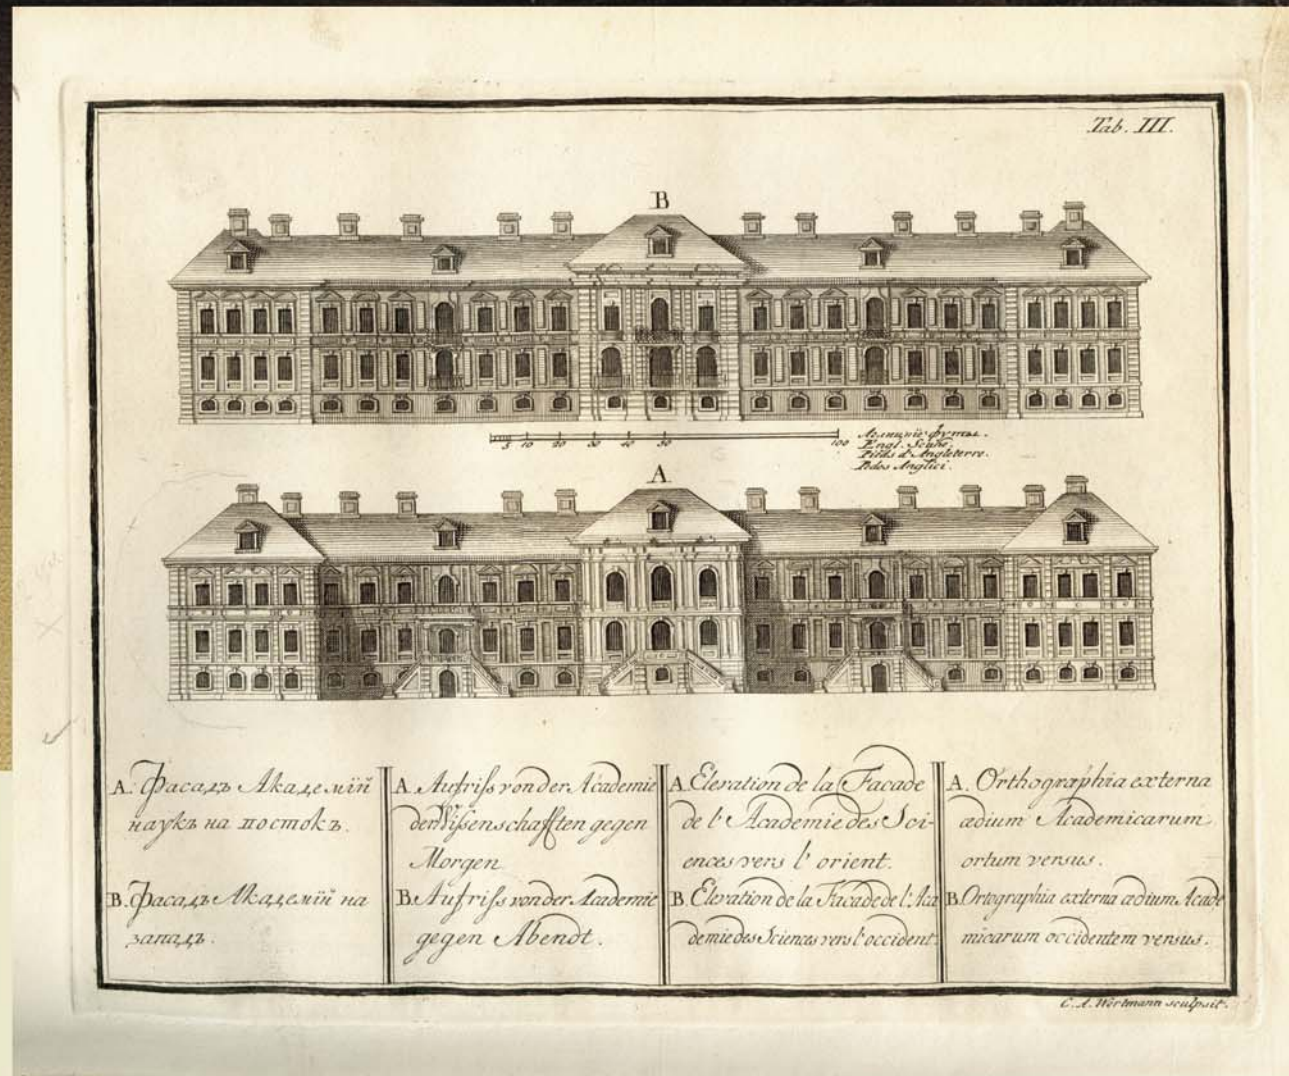 Tab. III.
B
5 10 20 30 40 50 100
футы.
Engl. Schue.
Pieds d'Angleterre.
Pedes Anglici.
A
A. Фасадъ Академïй
наукъ на востокъ.
B. Фасадъ Академïй на
западъ.
A. Aufriſs von der Academie
der Wiſsenschafften gegen
Morgen
B. Aufriſs von der Academie
gegen Abendt.
A. Elevation de la Facade
de l' Academie des Sci-
ences vers l' orient.
B. Elevation de la Facade de l'Aca
demie des Sciences vers l'occident.
A. Orthographia externa
ædium Academicarum
ortum versus.
B. Ortographia externa ædium Acade
micarum occidentem versus.
C. A. Wortmann sculpsit.